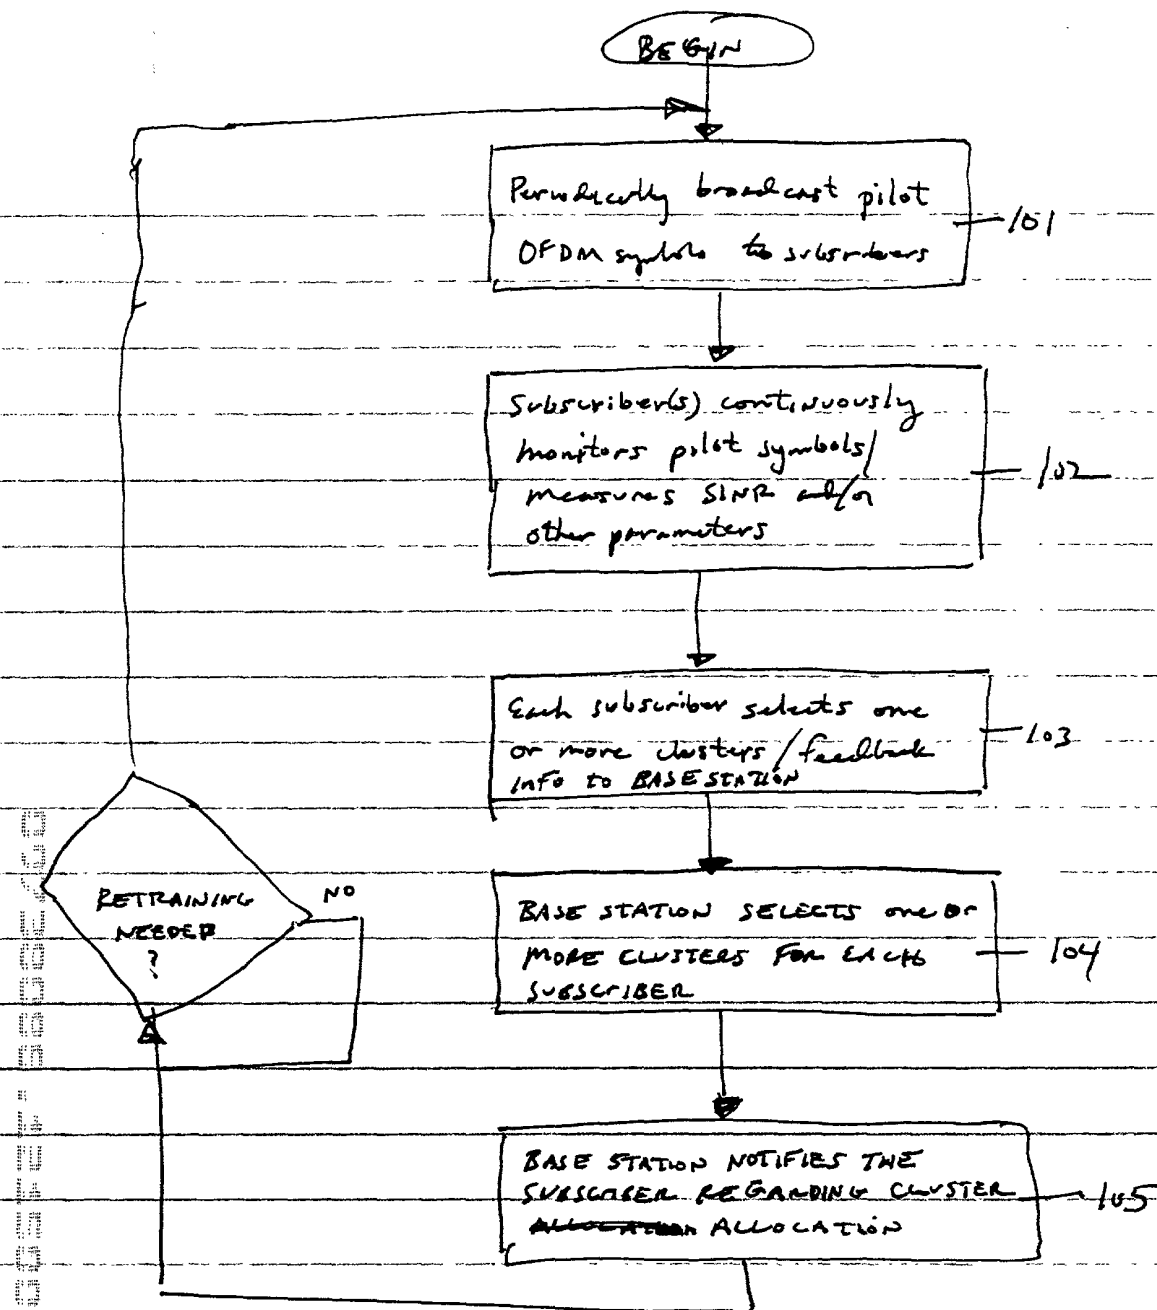 BEGIN
Periodically broadcast pilot
OFDM symbols to subscribers
101
Subscriber(s) continuously
monitors pilot symbols/
measures SINR and/or
other parameters
102
Each subscriber selects one
or more clusters/feedback
info to BASE STATION
103
BASE STATION SELECTS one or
MORE CLUSTERS FOR EACH
SUBSCRIBER
104
RETRAINING
NEEDED
?
NO
BASE STATION NOTIFIES THE
SUBSCRIBER REGARDING CLUSTER
ALLOCATION
105